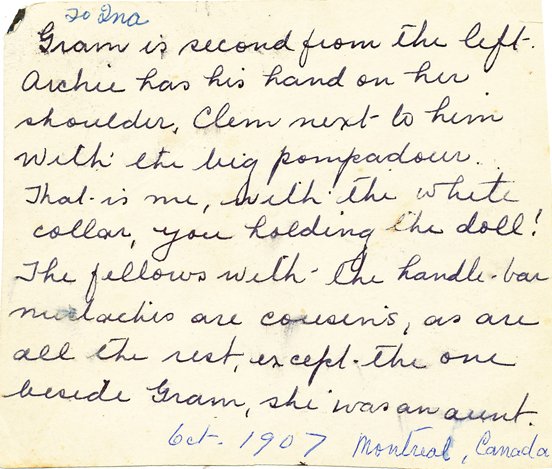 To Ina
Gram is second from the left.
Archie has his hand on her
shoulder, Clem next to him
with the big pompadour.
That is me, with the white
collar, you holding the doll!
The fellows with the handle-bar
mustaches are cousins, as are
all the rest, except the one
beside Gram, she was an aunt.
Oct. 1907 Montreal, Canada